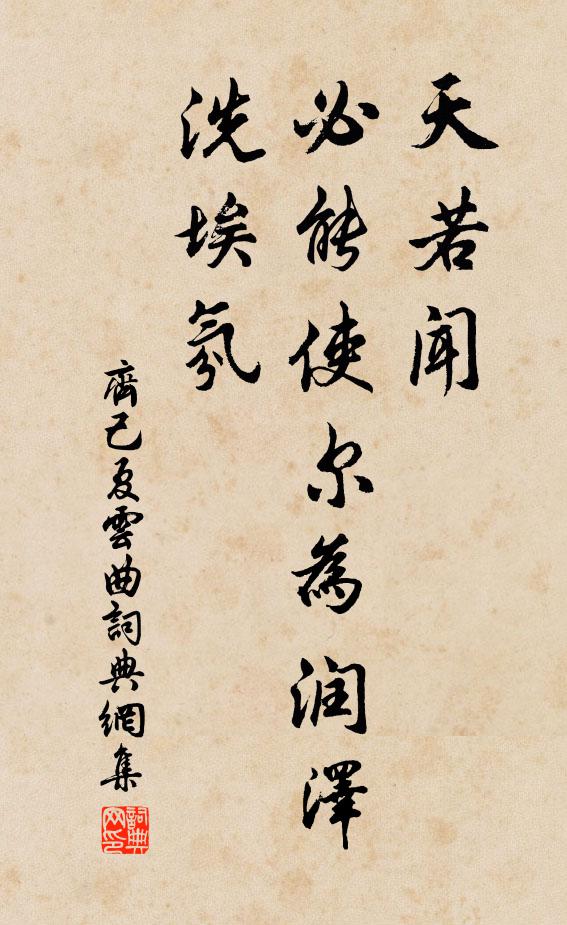 天若闻
必能使尔為润澤
洗埃氛
齊己夏雲曲詞典網集
詞典网印